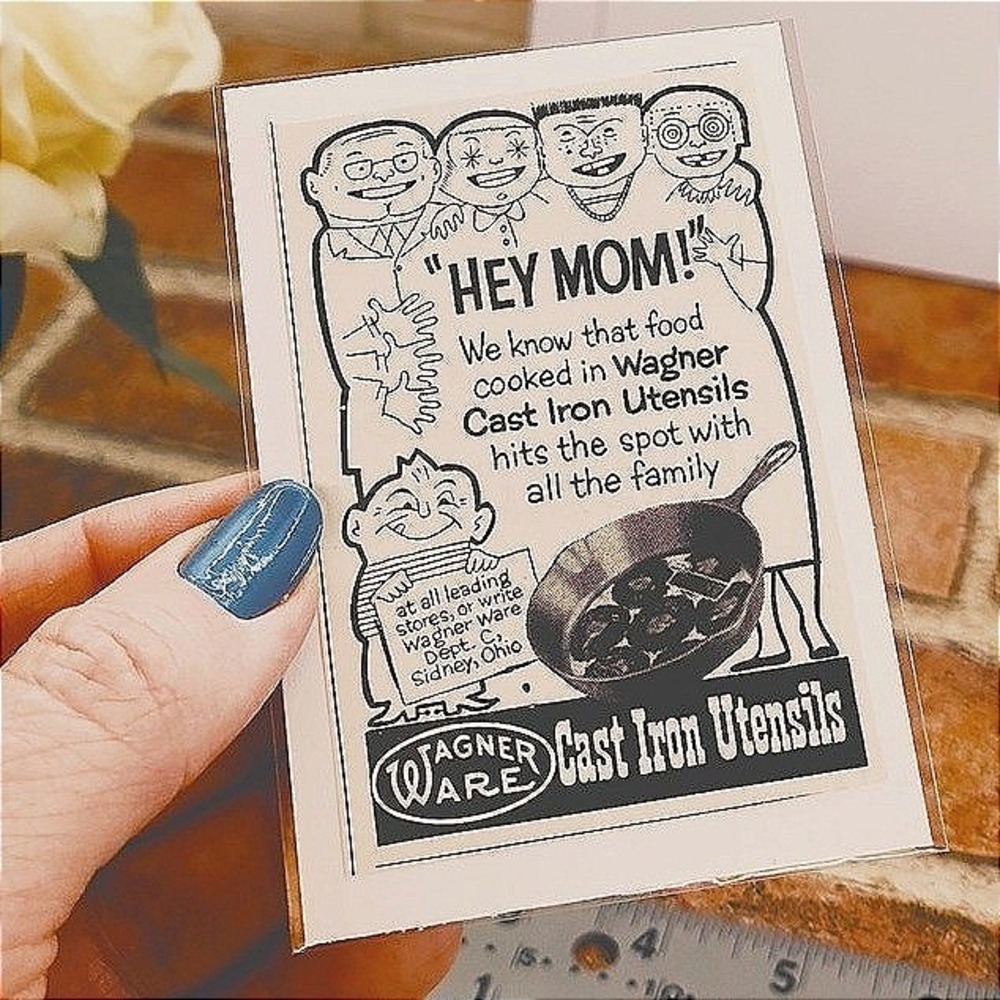 "HEY MOM!"
We know that food
cooked in Wagner
Cast Iron Utensils
hits the spot with
all the family
at all leading
stores, or write
Wagner Ware
Dept. C,
Sidney, Ohio
WAGNER
WARE
Cast Iron Utensils
4
5
1